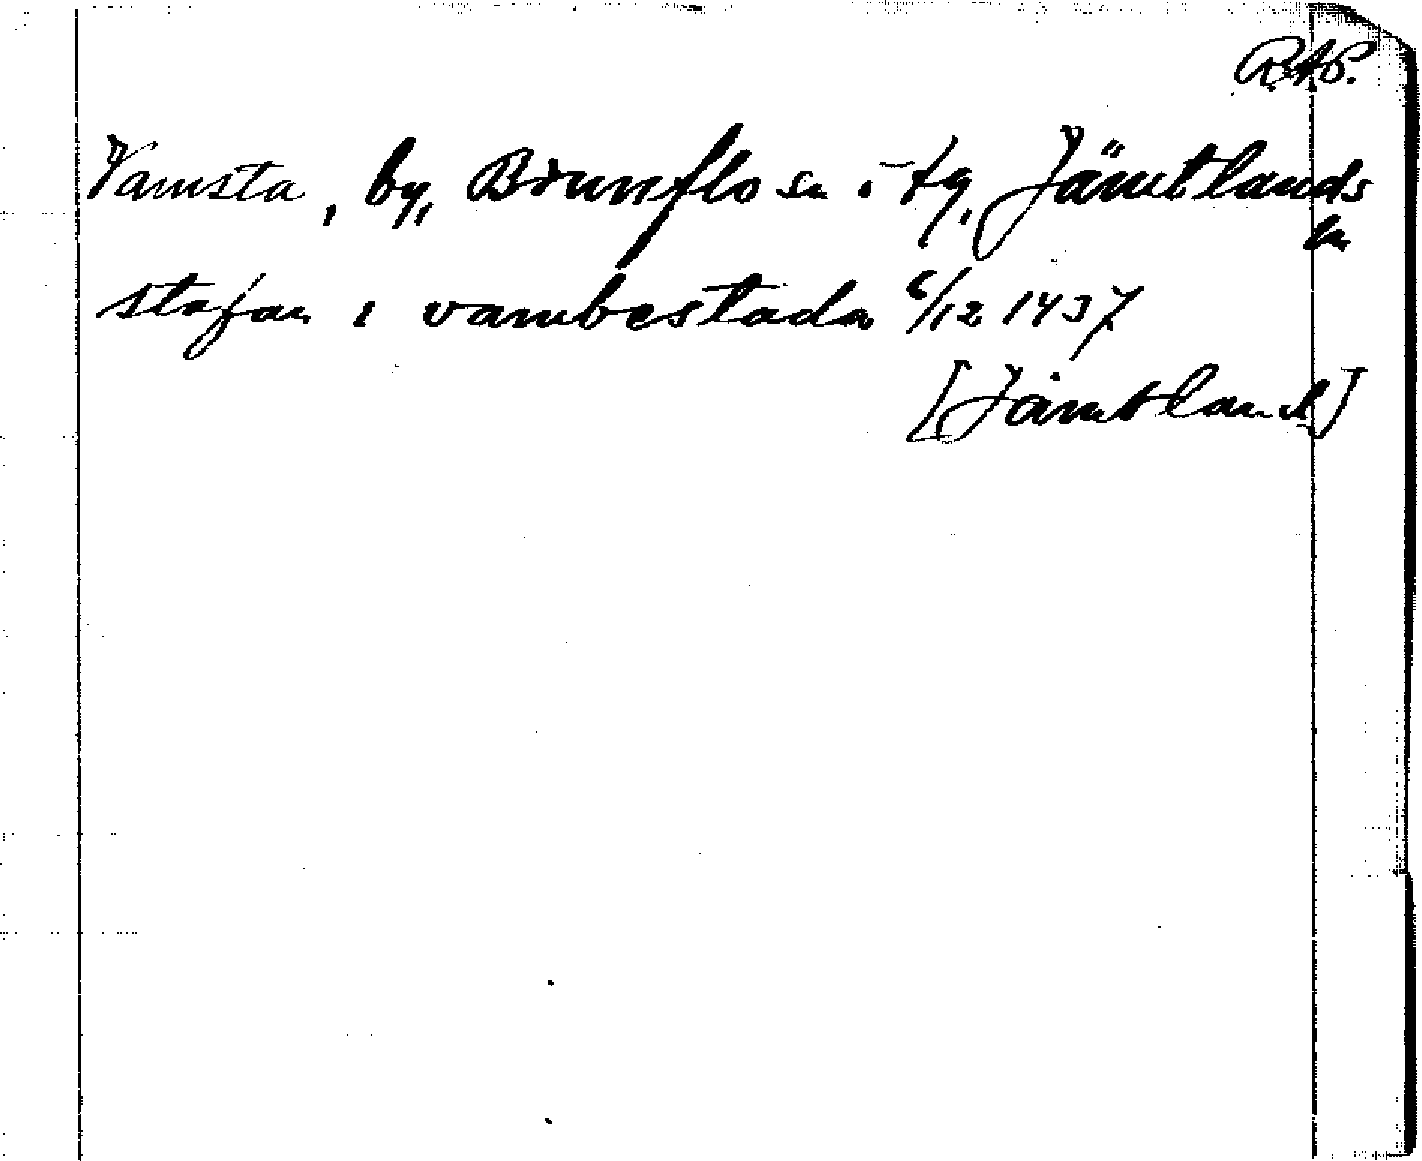 RAP.
Vamsta, by, Brunflo sn i tg, Jämtlands
ln
stafan i vambestada 6/12 1437
[Jämtland]